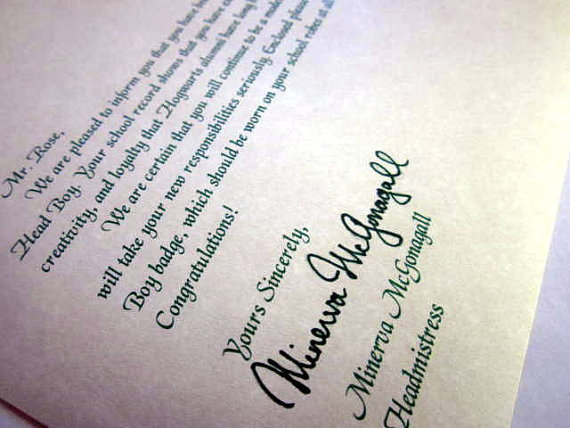 Mr. Rose,
We are pleased to inform you that you have
Head Boy. Your school record shows that you have
creativity, and loyalty that Hogwarts alumni have long
We are certain that you will continue to be a
will take your new responsibilities seriously. Enclosed please
Boy badge, which should be worn on your school robes at
Congratulations!
Yours Sincerely,
Minerva McGonagall
Minerva McGonagall
Headmistress